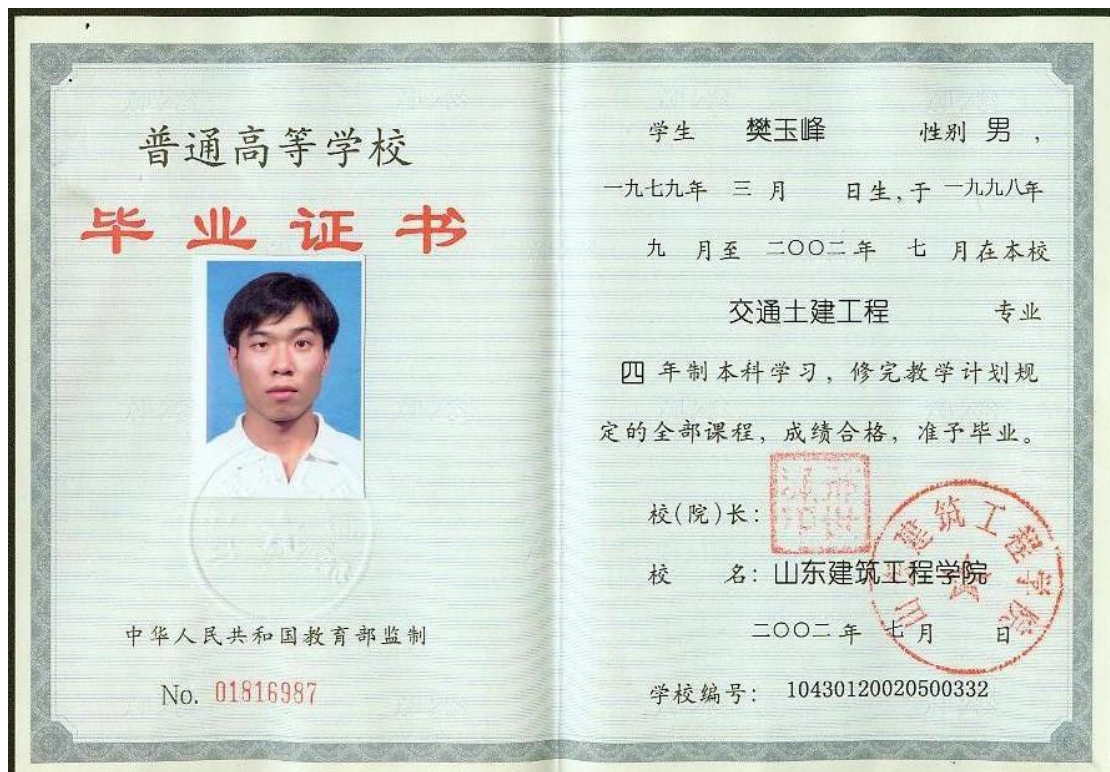 普通高等学校
毕业证书
中华人民共和国教育部监制
No. 01816987
学生 樊玉峰 性别 男，
一九七九年 三 月 日生，于 一九九八年
九 月至 二〇〇二年 七 月在本校
交通土建工程 专业
四 年制本科学习，修完教学计划规
定的全部课程，成绩合格，准予毕业。
校(院)长：
校 名：山东建筑工程学院
二〇〇二年 七月 日
山东建筑工程学院
学校编号： 10430120020500332